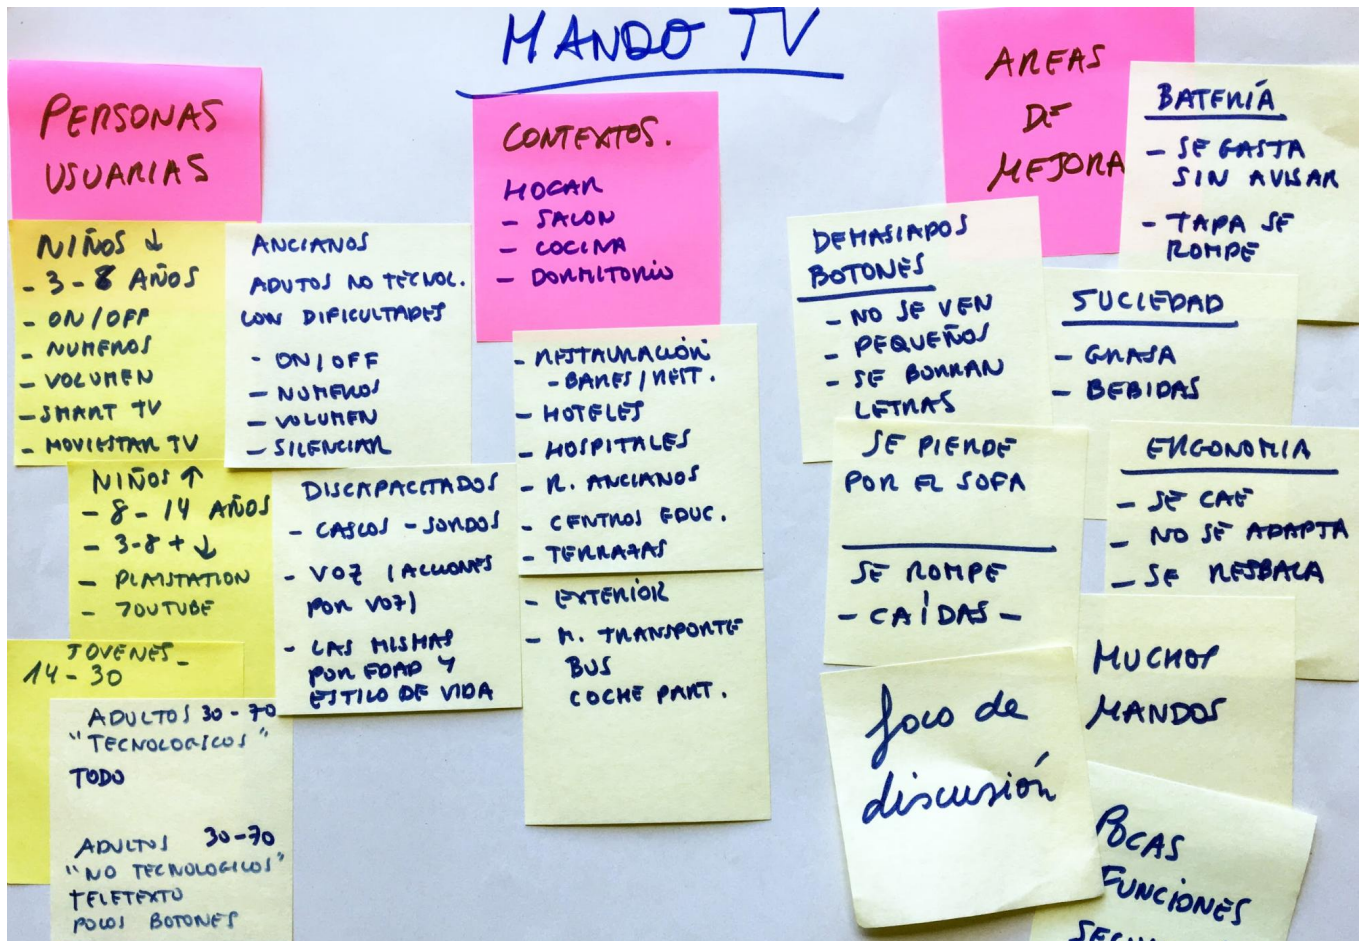 MANDO TV
PERSONAS
USUARIAS
NIÑOS ↓
- 3 - 8 AÑOS
- ON / OFF
- NUMEROS
- VOLUMEN
- SMART TV
- MOVIESTAR TV
NIÑOS ↑
- 8 - 14 AÑOS
- 3-8 + ↓
- PLAYSTATION
- YOUTUBE
JOVENES -
14 - 30
ADULTOS 30 - 70
"TECNOLOGICOS"
TODO
ADULTOS 30-70
"NO TECNOLOGICOS"
TELETEXTO
POCOS BOTONES
ANCIANOS
ADUTOS NO TECNOL.
CON DIFICULTADES
- ON / OFF
- NUMEROS
- VOLUMEN
- SILENCIAR
DISCAPACITADOS
- CASCOS - SORDOS
- VOZ (ACCIONES
POR VOZ)
- LAS MISMAS
POR EDAD Y
ESTILO DE VIDA
CONTEXTOS.
HOGAR
- SALON
- COCINA
- DORMITORIO
- RESTAURACIÓN
- BARES / REST.
- HOTELES
- HOSPITALES
- R. ANCIANOS
- CENTROS EDUC.
- TERRAZAS
- EXTERIOR
- M. TRANSPORTE
BUS
COCHE PART.
AREAS
DE
MEJORA
BATERÍA
- SE GASTA
SIN AVISAR
- TAPA SE
ROMPE
DEMASIADOS
BOTONES
- NO SE VEN
- PEQUEÑOS
- SE BORRAN
LETRAS
SUCIEDAD
- GRASA
- BEBIDAS
SE PIERDE
POR EL SOFA
SE ROMPE
- CAÍDAS -
ERGONOMIA
- SE CAE
- NO SE ADAPTA
- SE RESBALA
foco de
discusión
MUCHOS
MANDOS
POCAS
FUNCIONES